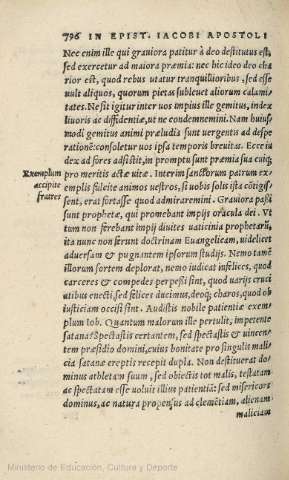 796 IN EPIST. IACOBI APOSTOLI
Nec enim ille qui grauiora patitur à deo destitutus est,
sed exercetur ad maiora præmia: nec hic ideo deo cha
rior est, quod rebus utatur tranquillioribus: sed esse
uult aliquos, quorum pietas subleuet aliorum calami
tates. Ne sit igitur inter uos impius ille gemitus, index
liuoris ac diffidentiæ, ut ne condemnemini. Nam huius
modi gemitus animi præludia sunt uergentis ad despe
rationē: consoletur uos ipsa temporis breuitas. Ecce iu
dex ad fores adsistit, in promptu sunt præmia sua cuiq;
pro meritis actæ uitæ. Interim sanctorum patrum ex-
emplis fulcite animos uestros, si uobis solis ista cōtigis
sent, erat fortasse quod admiraremini. Grauiora passi
sunt prophetæ, qui promebant impijs oracula dei. Vt
tum non ferebant impij diuites uaticinia prophetarū,
ita nunc non ferunt doctrinam Euangelicam, uidelicet
aduersam & pugnantem ipsorum studijs. Nemo tamē
illorum sortem deplorat, nemo iudicat infelices, quod
carceres & compedes perpessi sint, quod uarijs cruci
atibus enecti, sed felices ducimus, deoq; charos, quod ob
iusticiam occisi sint. Audistis nobile patientiæ exem-
plum Iob. Quantum malorum ille pertulit, impetente
satana? Spectastis certantem, sed spectastis & uincen-
tem præsidio domini, cuius bonitate pro singulis mali
cia satanæ ereptis recepit dupla. Non destituerat do-
minus athletam suum, sed obiectis tot malis, testatam
ac spectatam esse uoluit illius patientiā: sed misericors
dominus, ac natura propensus ad clemētiam, alienam
maliciam
Exemplum
accipite
fratres
Ministerio de Educación, Cultura y Deporte